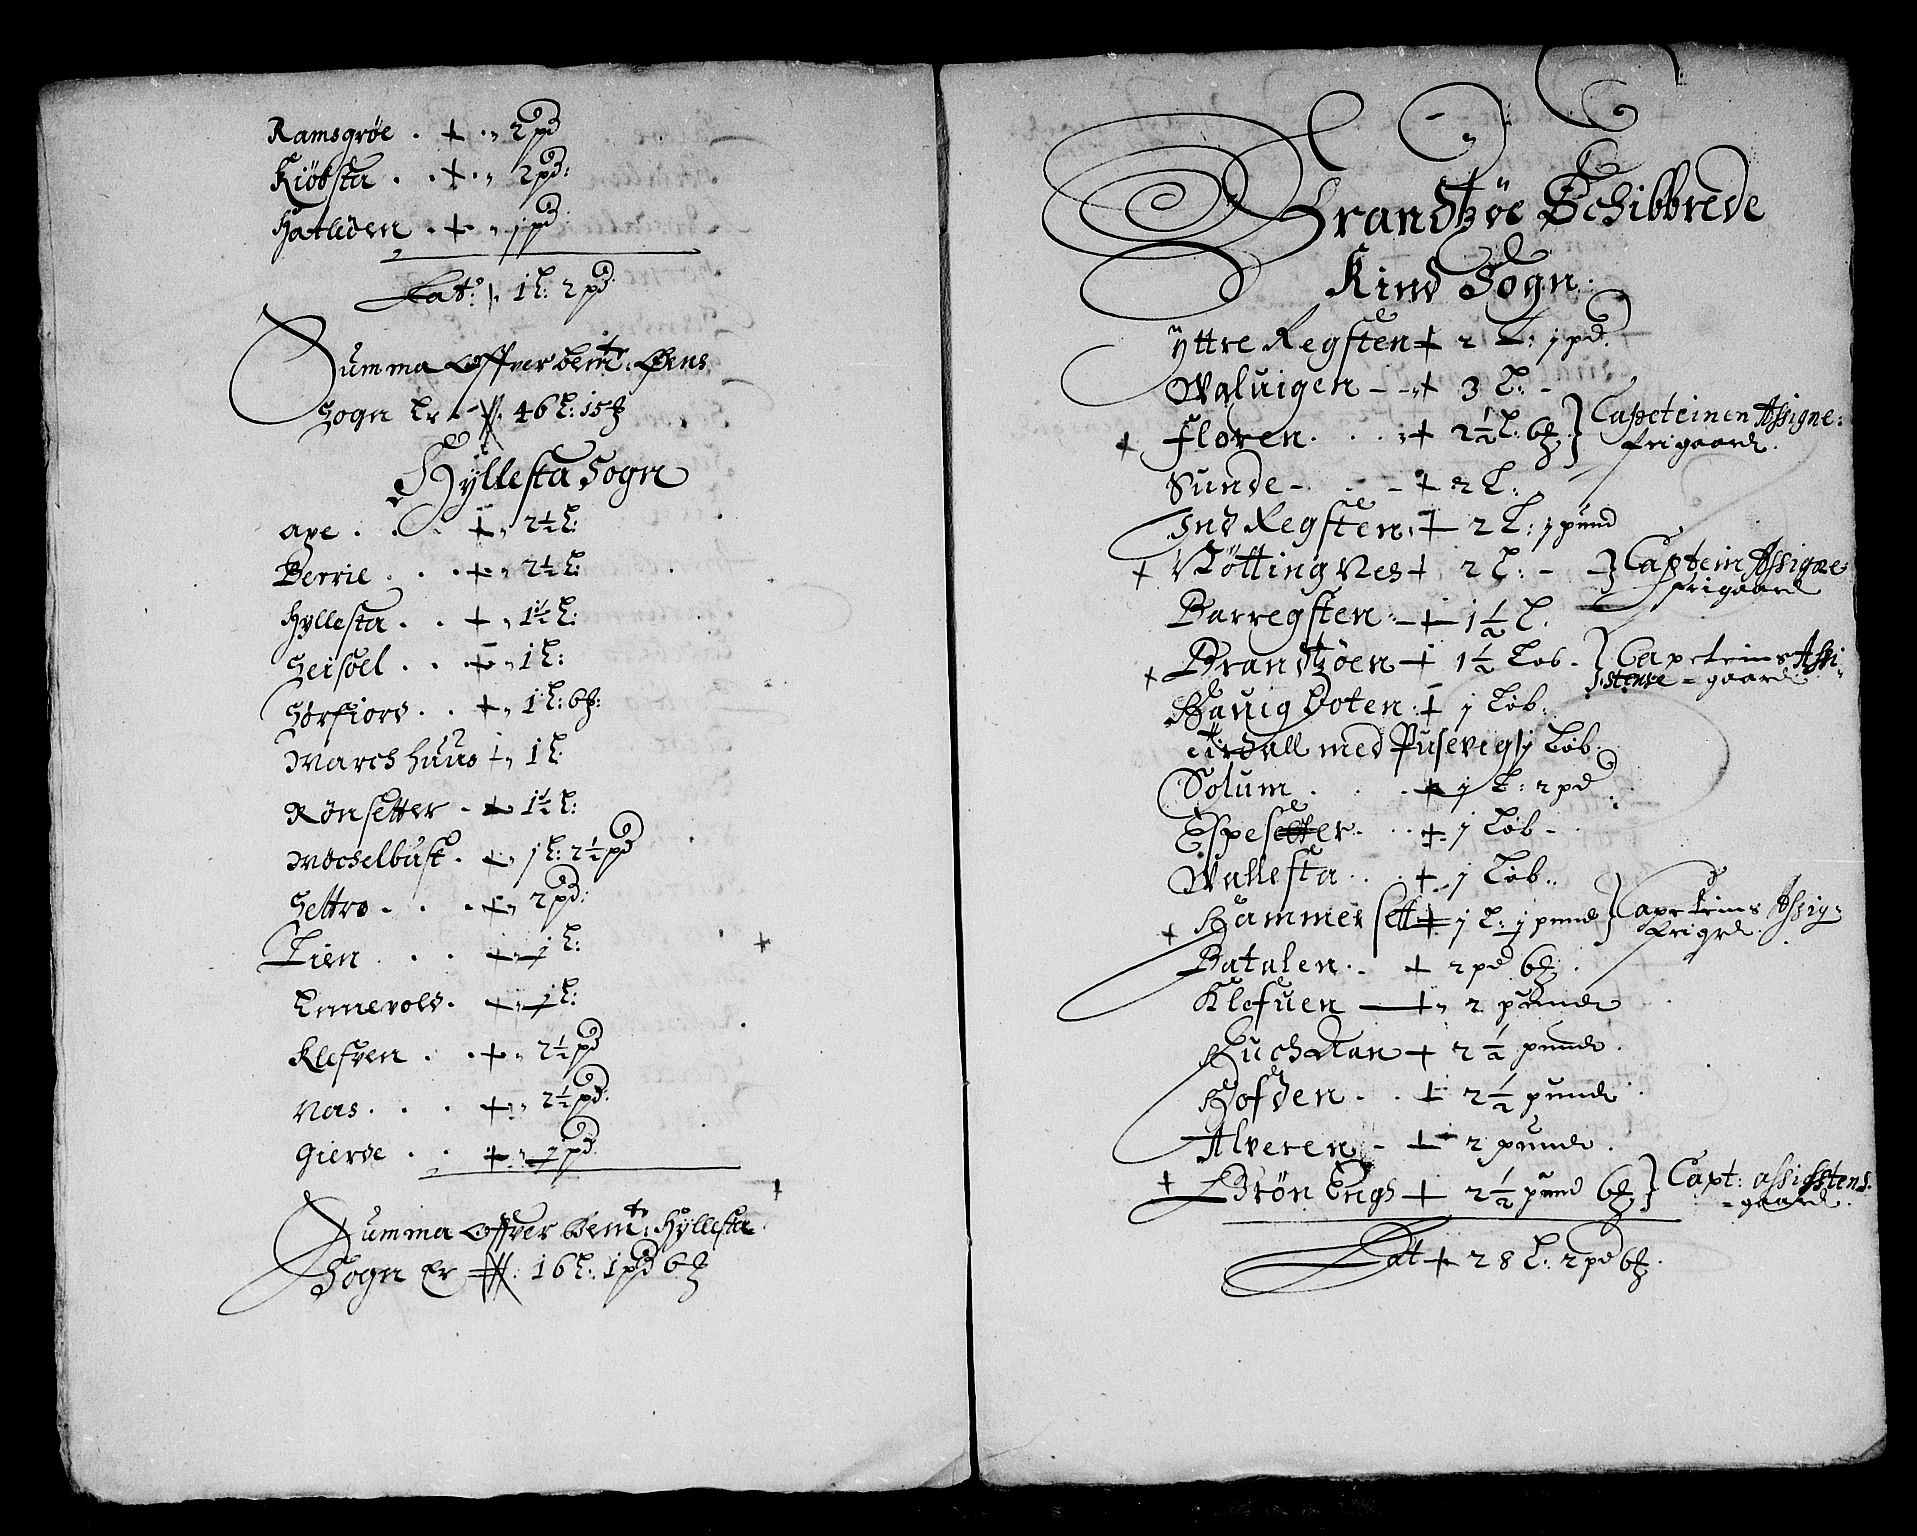 Ramsgröe . + . „ 2 pd
Kiöbsta . . + . „ 2 pd:
Hatleden . + . „ j pd
Lat: 1 L: 2 pd:
Summa Offver bemt: Øens
Sogn Er - 46 L: 15 
Hyllesta Sogn
Ave . . + „ 2½ L:
Berrie . . + „ 2½ L:
Hyllesta . . + „ 1½ L:
Seisöel . . + „ 1 L:
Sörfiord . . + „ 1 L: 6
March huus + „ 1 L
Rönsetter - + 1½ L:
Möchelbust . + „ j L: 2½ pd
Settro . . + „ 2 pd:
Lien . . . + j L:
Ennevold . + „ j L:
Klefven . . + „ 2½ pd
Nas . . . + „ 2½ pd:
Gierde . . + „ j pd
Summa Offver bemt: Hyllesta
Sogn Er 16 L: 1 pd 6
Brandtzöe Schibbrede
Kind Sogn:
Yttre Regsten + 2 L: j pd.
Waluigen - - + 3 L: -
+ Floren . . . + 2½ L: 6 } Capeteinen Assigne:
frigaard.
Sunde - . - - + 2 L:
Ind Regsten + 2 L: j pund
+ Nötting Nes + 2 L: - - } Captein Assigne
frigaard
Barregsten . + 1½ L.
+ Brandtzöen + 1½ Løb - } Capeteins Assi-
stense - gaard
Hauig Boten . + j Løb.
med Pusevigs j Løb
Solum . . . + j L: 2 pd
Espesetter - . . + j Løb -
Wallesta . . . + j Løb.
+ Hammersett + j L: j pund } Capeteins Assig:
frigrd.
Batalen . - + 2 pd 6
Klefuen + „ 2 punde
Huch + 2½ punde
Hofden . . + 2½ punde
Alveren - + 2 punde
+ Brön Engs + 2½ pund 6 } Capt: assisstens
- gaard.
Lat + 28 L: 2 pd 6